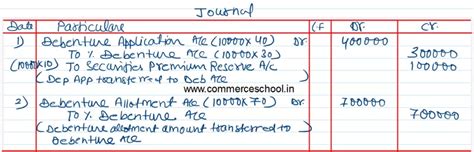 Journal
Date Particulars L.f Dr. Cr.
1) Debenture Application A/c (10000×40) Dr. 400000
To % Debenture A/c (10000×30) 300000
(10000×10) To Securities Premium Reserve A/c 100000
(Dep App transferred to Deb A/c
www.commerceschool.in
2) Debenture Allotment A/c (10000×70) Dr. 700000
To % Debenture A/c 700000
(Debenture allotment amount transferred to
Debenture A/c